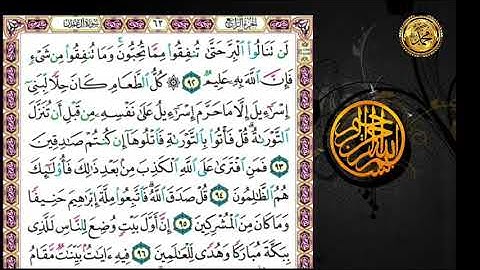 سورة آل عمران
٦٢
الجزء الرابع
لَن تَنَالُوا۟ ٱلْبِرَّ حَتَّىٰ تُنفِقُوا۟ مِمَّا تُحِبُّونَ ۚ وَمَا تُنفِقُوا۟ مِن شَىْءٍ
فَإِنَّ ٱللَّهَ بِهِۦ عَلِيمٌ ٩٢ ۞ كُلُّ ٱلطَّعَامِ كَانَ حِلًّا لِّبَنِىٓ
إِسْرَٰٓءِيلَ إِلَّا مَا حَرَّمَ إِسْرَٰٓءِيلُ عَلَىٰ نَفْسِهِۦ مِن قَبْلِ أَن تُنَزَّلَ
ٱلتَّوْرَىٰةُ ۗ قُلْ فَأْتُوا۟ بِٱلتَّوْرَىٰةِ فَٱتْلُوهَآ إِن كُنتُمْ صَـٰدِقِينَ
٩٣ فَمَنِ ٱفْتَرَىٰ عَلَى ٱللَّهِ ٱلْكَذِبَ مِنۢ بَعْدِ ذَٰلِكَ فَأُو۟لَـٰٓئِكَ
هُمُ ٱلظَّـٰلِمُونَ ٩٤ قُلْ صَدَقَ ٱللَّهُ ۗ فَٱتَّبِعُوا۟ مِلَّةَ إِبْرَٰهِيمَ حَنِيفًا
وَمَا كَانَ مِنَ ٱلْمُشْرِكِينَ ٩٥ إِنَّ أَوَّلَ بَيْتٍ وُضِعَ لِلنَّاسِ لَلَّذِى
بِبَكَّةَ مُبَارَكًا وَهُدًى لِّلْعَـٰلَمِينَ ٩٦ فِيهِ ءَايَـٰتٌۢ بَيِّنَـٰتٌ مَّقَامُ
محمد
بسم الله الرحمن الرحيم